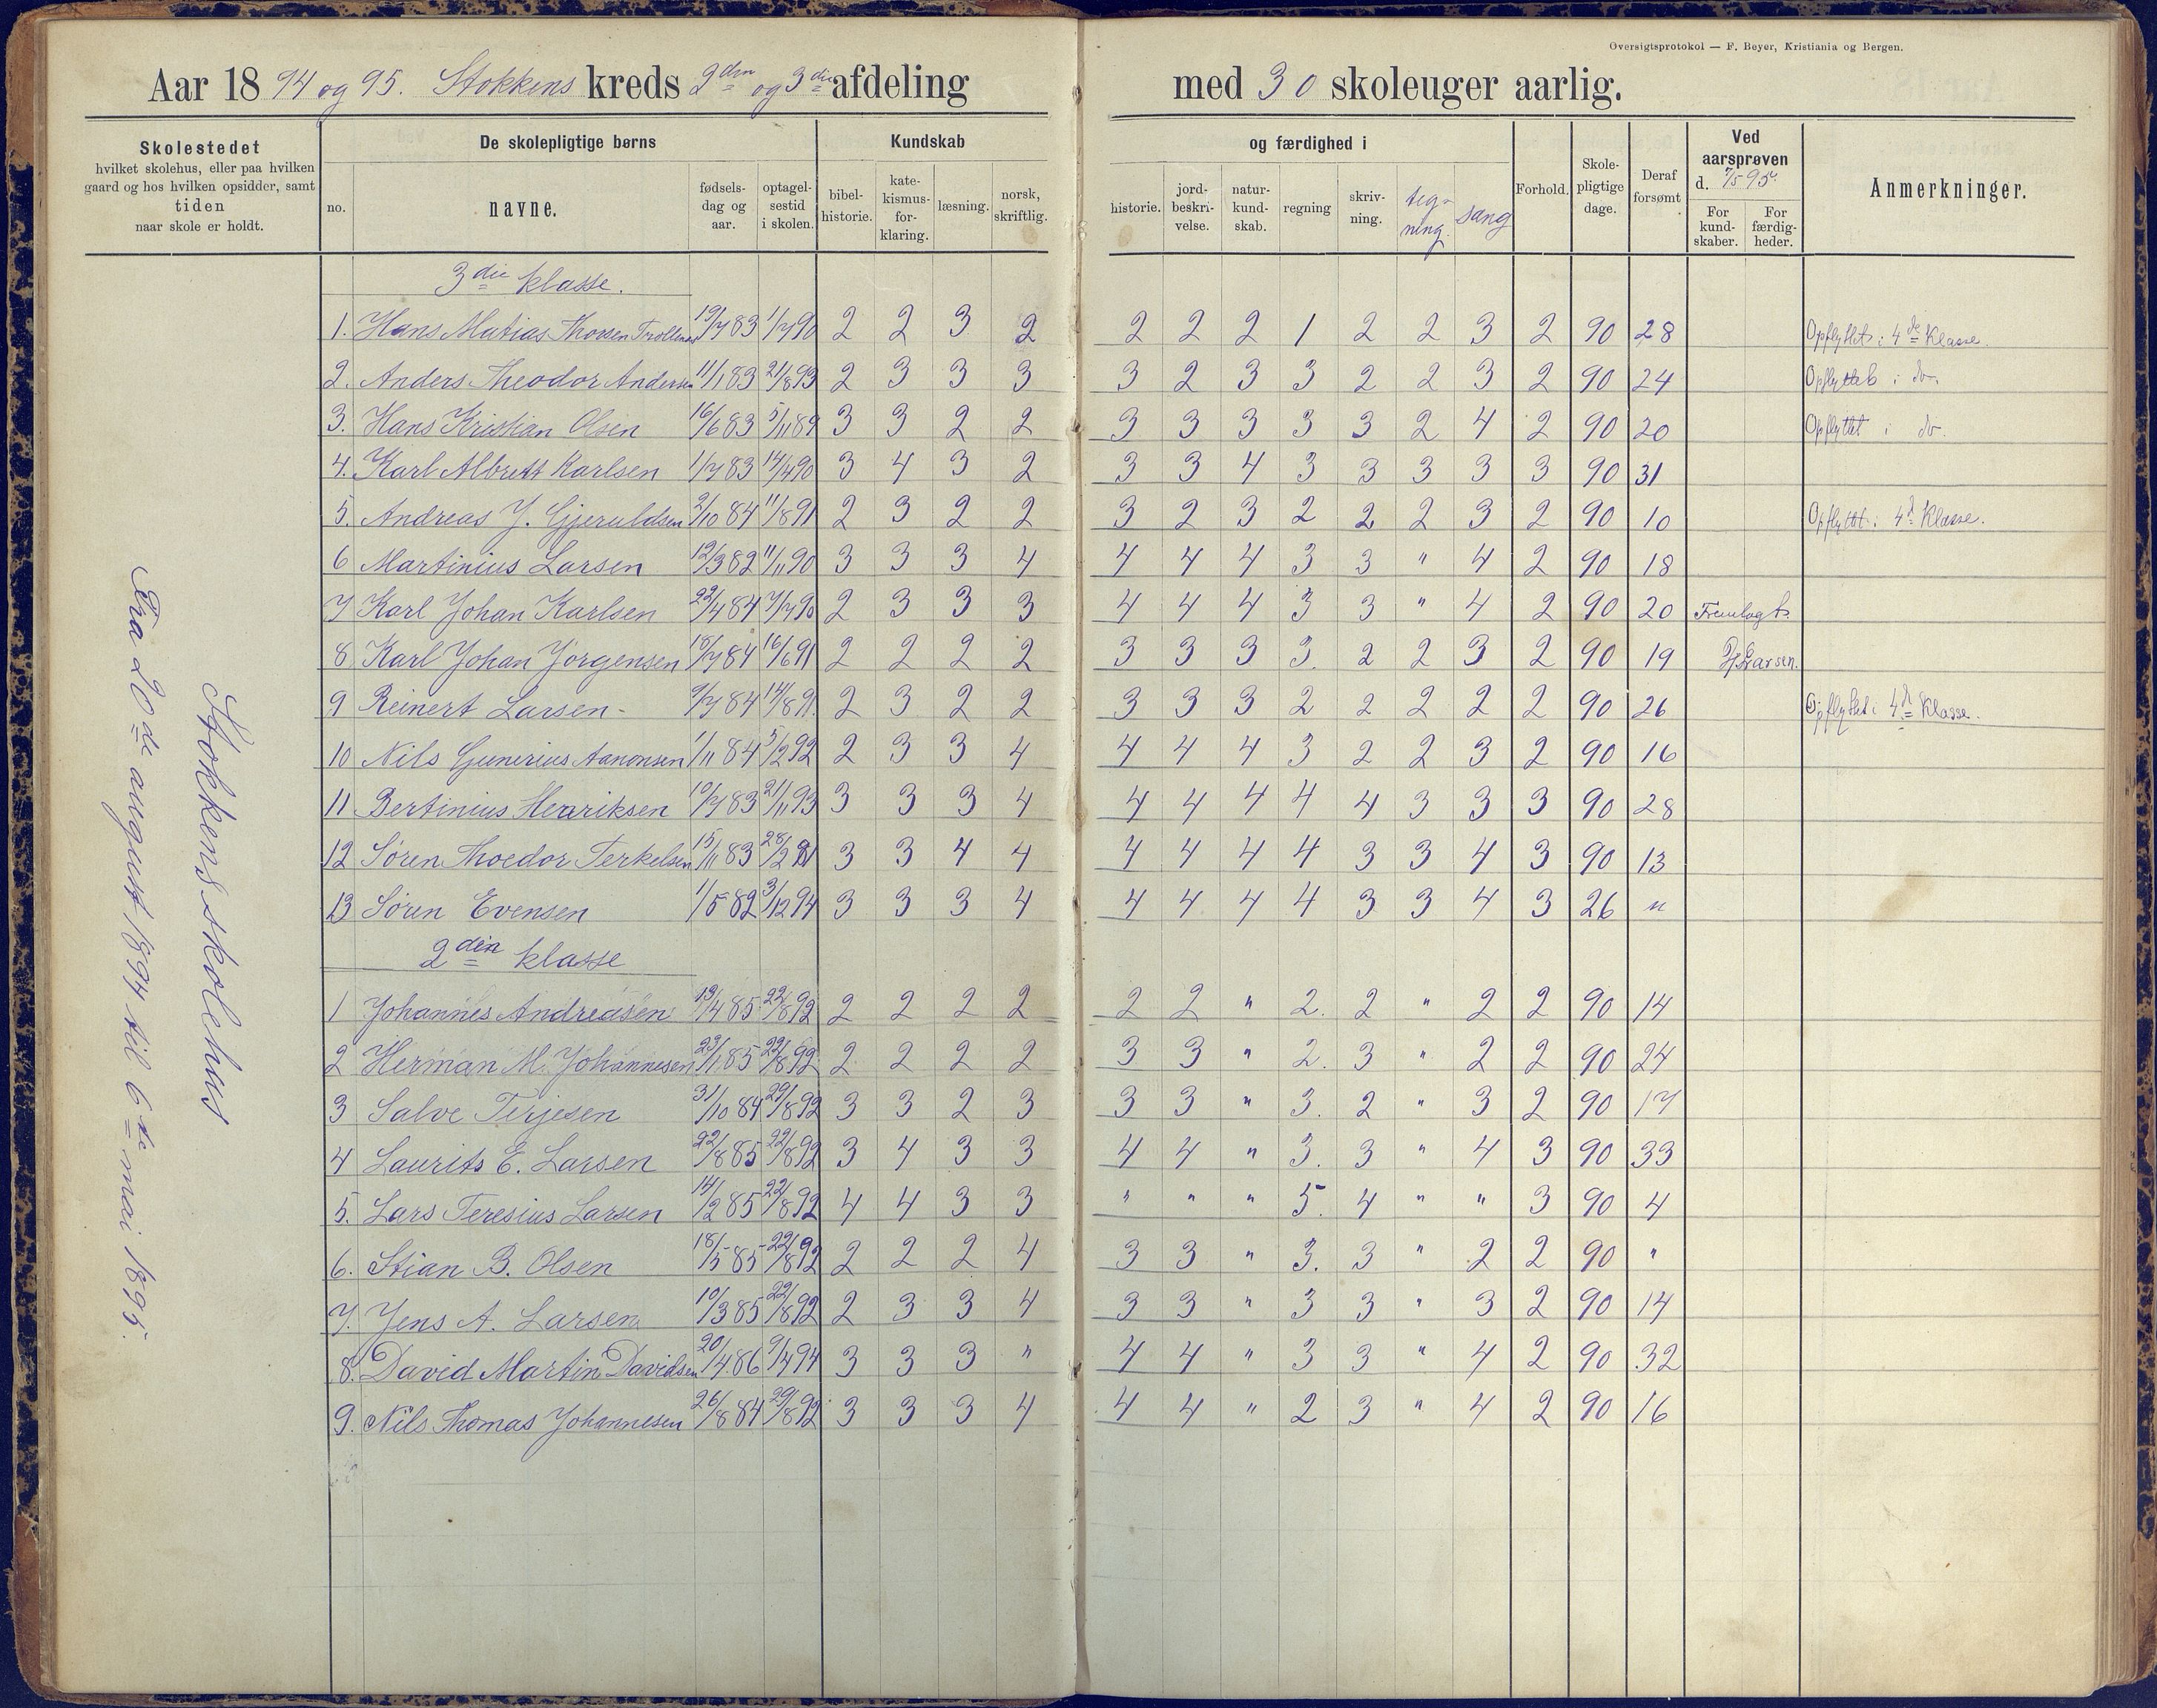 Oversigtsprotokol — F. Beyer, Kristiania og Bergen.
Aar 1894 og 95. Stokkens kreds 2den og 3die afdeling med 30 skoleuger aarlig.
Skolestedet
hvilket skolehus, eller paa hvilken
gaard og hos hvilken opsidder, samt
tiden
naar skole er holdt.
De skolepligtige børns
no.
navne.
fødsels-
dag og
aar.
optagel-
sestid
i skolen.
Kundskab
bibel-
historie.
kate-
kismus-
for-
klaring.
læsning.
norsk,
skriftlig.
og færdighed i
historie.
jord-
beskri-
velse.
natur-
kund-
skab.
regning
skriv-
ning.
teg-
ning.
sang
Forhold.
Skole-
pligtige
dage.
Deraf
forsømt
Ved
aarsprøven
d. 7/5 95.
For
kund-
skaber.
For
færdig-
heder.
Anmerkninger.
Stokkens skolehus
Fra 20de august 1894 til 6te mai 1895.
3die klasse.
1. Hans Matias Thorsen 19/7 83 1/7 90 2 2 3 2 2 2 2 1 2 2 3 2 90 28 Opflyttet i 4de Klasse.
2. Anders Theodor Andersen 11/1 83 21/8 93 2 3 3 3 3 2 3 3 2 2 3 2 90 24 Opflyttet i do.
3. Hans Kristian Olsen 16/6 83 5/11 89 3 3 2 2 3 3 3 3 3 2 4 2 90 20 Opflyttet i do.
4. Karl Albrett Karlsen 1/7 83 14/4 90 3 4 3 2 3 3 4 3 3 3 3 3 90 31
5. Andreas J. Gjeruldsen 2/10 84 11/8 91 2 3 2 2 3 2 3 2 2 2 3 2 90 10 Opflyttet i 4d Klasse.
6 Martinius Larsen 12/3 82 11/11 90 3 3 3 4 4 4 4 3 3 " 4 2 90 18
7 Karl Johan Karlsen 22/4 84 7/7 90 2 3 3 3 4 4 4 3 3 " 4 2 90 20 Fremlagt.
8 Karl Johan Jørgensen 18/7 84 16/6 91 2 2 2 2 3 3 3 3. 2 2 3 2 90 19 Larsen.
9 Reinert Larsen 9/7 84 14/8 91. 2 3 2 2 3 3 3 2 2 2 2 2 90 26 Opflyttet i 4d Klasse.
10 Nils Gunerius Aanonsen 1/11 84 5/2 92 2 3 3 4 4 4 4 3 2 2 3 2 90 16
11 Bertinius Henriksen 10/7 83 21/11 93 3 3 3 4 4 4 4 4 4 3 3 3 90 28
12 Søren Thoedor Terkelsen 15/11 83 28/2 91 3 3 4 4 4 4 4 4 3 3 4 3 90 13
13 Søren Evensen 1/5 82 3/12 94 3 3 3 4 4 4 4 4 3 3 4 3 26 "
2den klasse
1 Johannes Andreasen 13/4 85 22/8 92 2 2 2 2 2 2 " 2. 2 " 2 2 90 14
2 Herman M. Johannesen 23/1 85 22/8 92 2 2 2 2 3 3 " 2. 3 " 2 2 90 24
3 Salve Terjesen 31/10 84 22/8 92 3 3 2 3 3 3 " 3. 2 " 3 2 90 17
4 Laurits E. Larsen 22/8 85 22/8 92 3 4 3 3 4 4 " 3. 3 " 4 3 90 33
5. Lars Teresius Larsen 14/2 85 22/8 92 4 4 3 3 " " " 5. 4 " " 3 90 4
6. Stian B. Olsen 18/5 85 22/8 92 2 2 2 4 3 3 " 3. 3 " 2 2 90 "
7. Jens A. Larsen 10/3 85 22/8 92 2 3 3 4 3 3 " 3 3 " 3 2 90 14
8. David Martin Davidsen 20/4 86 9/4 94 3 3 3 " 4 4 " 3 3 " 4 2 90 32
9. Nils Thomas Johannesen 26/8 84 29/8 92 3 3 3 4 4 4 " 2 3 " 4 2 90 16